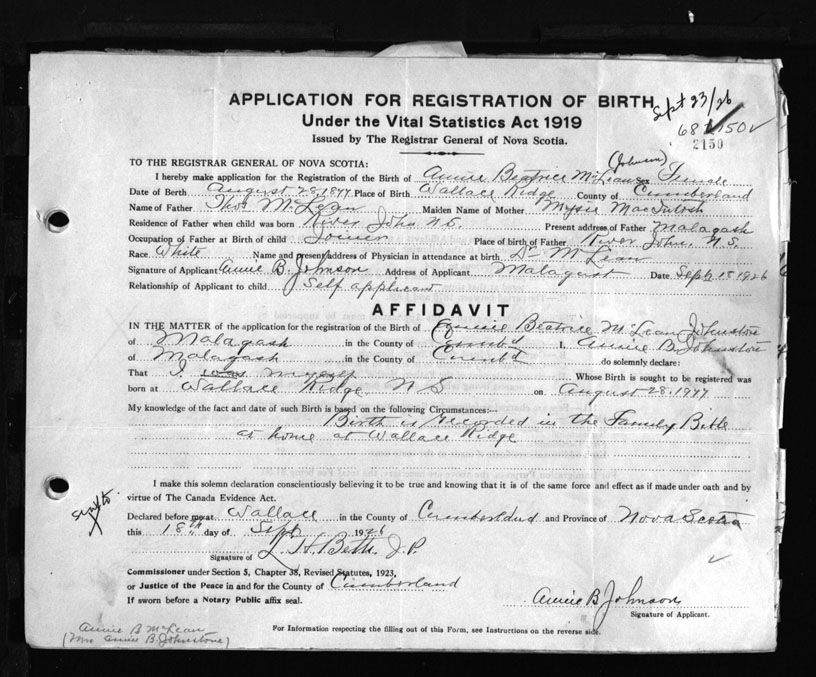 APPLICATION FOR REGISTRATION OF BIRTH
Sept 23/26
Under the Vital Statistics Act 1919
Issued by The Registrar General of Nova Scotia.
2150
(Johnson)
TO THE REGISTRAR GENERAL OF NOVA SCOTIA:
I hereby make application for the Registration of the Birth of Annie Beatrice McLean Sex Female
Date of Birth August 28, 1877 Place of Birth Wallace Ridge County of Cumberland
Name of Father Thos McLean Maiden Name of Mother MacIntosh
Residence of Father when child was born River John N.S. Present address of Father Malagash
Occupation of Father at Birth of child Joiner Place of birth of Father River John, N.S.
Race White Name and present address of Physician in attendance at birth Dr McLean
Signature of Applicant Annie B. Johnson Address of Applicant Malagash Date Sept 18 1926
Relationship of Applicant to child Self applicant
AFFIDAVIT
IN THE MATTER of the application for the registration of the Birth of Annie Beatrice McLean Johnstone
of Malagash in the County of Cumb'd I, Annie B. Johnstone
of Malagash in the County of Cumb'd do solemnly declare:
That I was myself Whose Birth is sought to be registered was
born at Wallace Ridge N S on August 28, 1877
My knowledge of the fact and date of such Birth is based on the following Circumstances:--
Birth is recorded in the Family Bible
at home at Wallace Ridge
I make this solemn declaration conscientiously believing it to be true and knowing that it is of the same force and effect as if made under oath and by
virtue of The Canada Evidence Act.
Declared before me at Wallace in the County of Cumberland and Province of Nova Scotia
this 18th day of Sept 1926
Signature of J.P.
Commissioner under Section 5, Chapter 38, Revised Statutes, 1923,
or Justice of the Peace in and for the County of Cumberland
If sworn before a Notary Public affix seal.
Annie B Johnson
Signature of Applicant.
Annie B McLean
(Mrs Annie B. Johnstone)
For Information respecting the filling out of this Form, see Instructions on the reverse side.